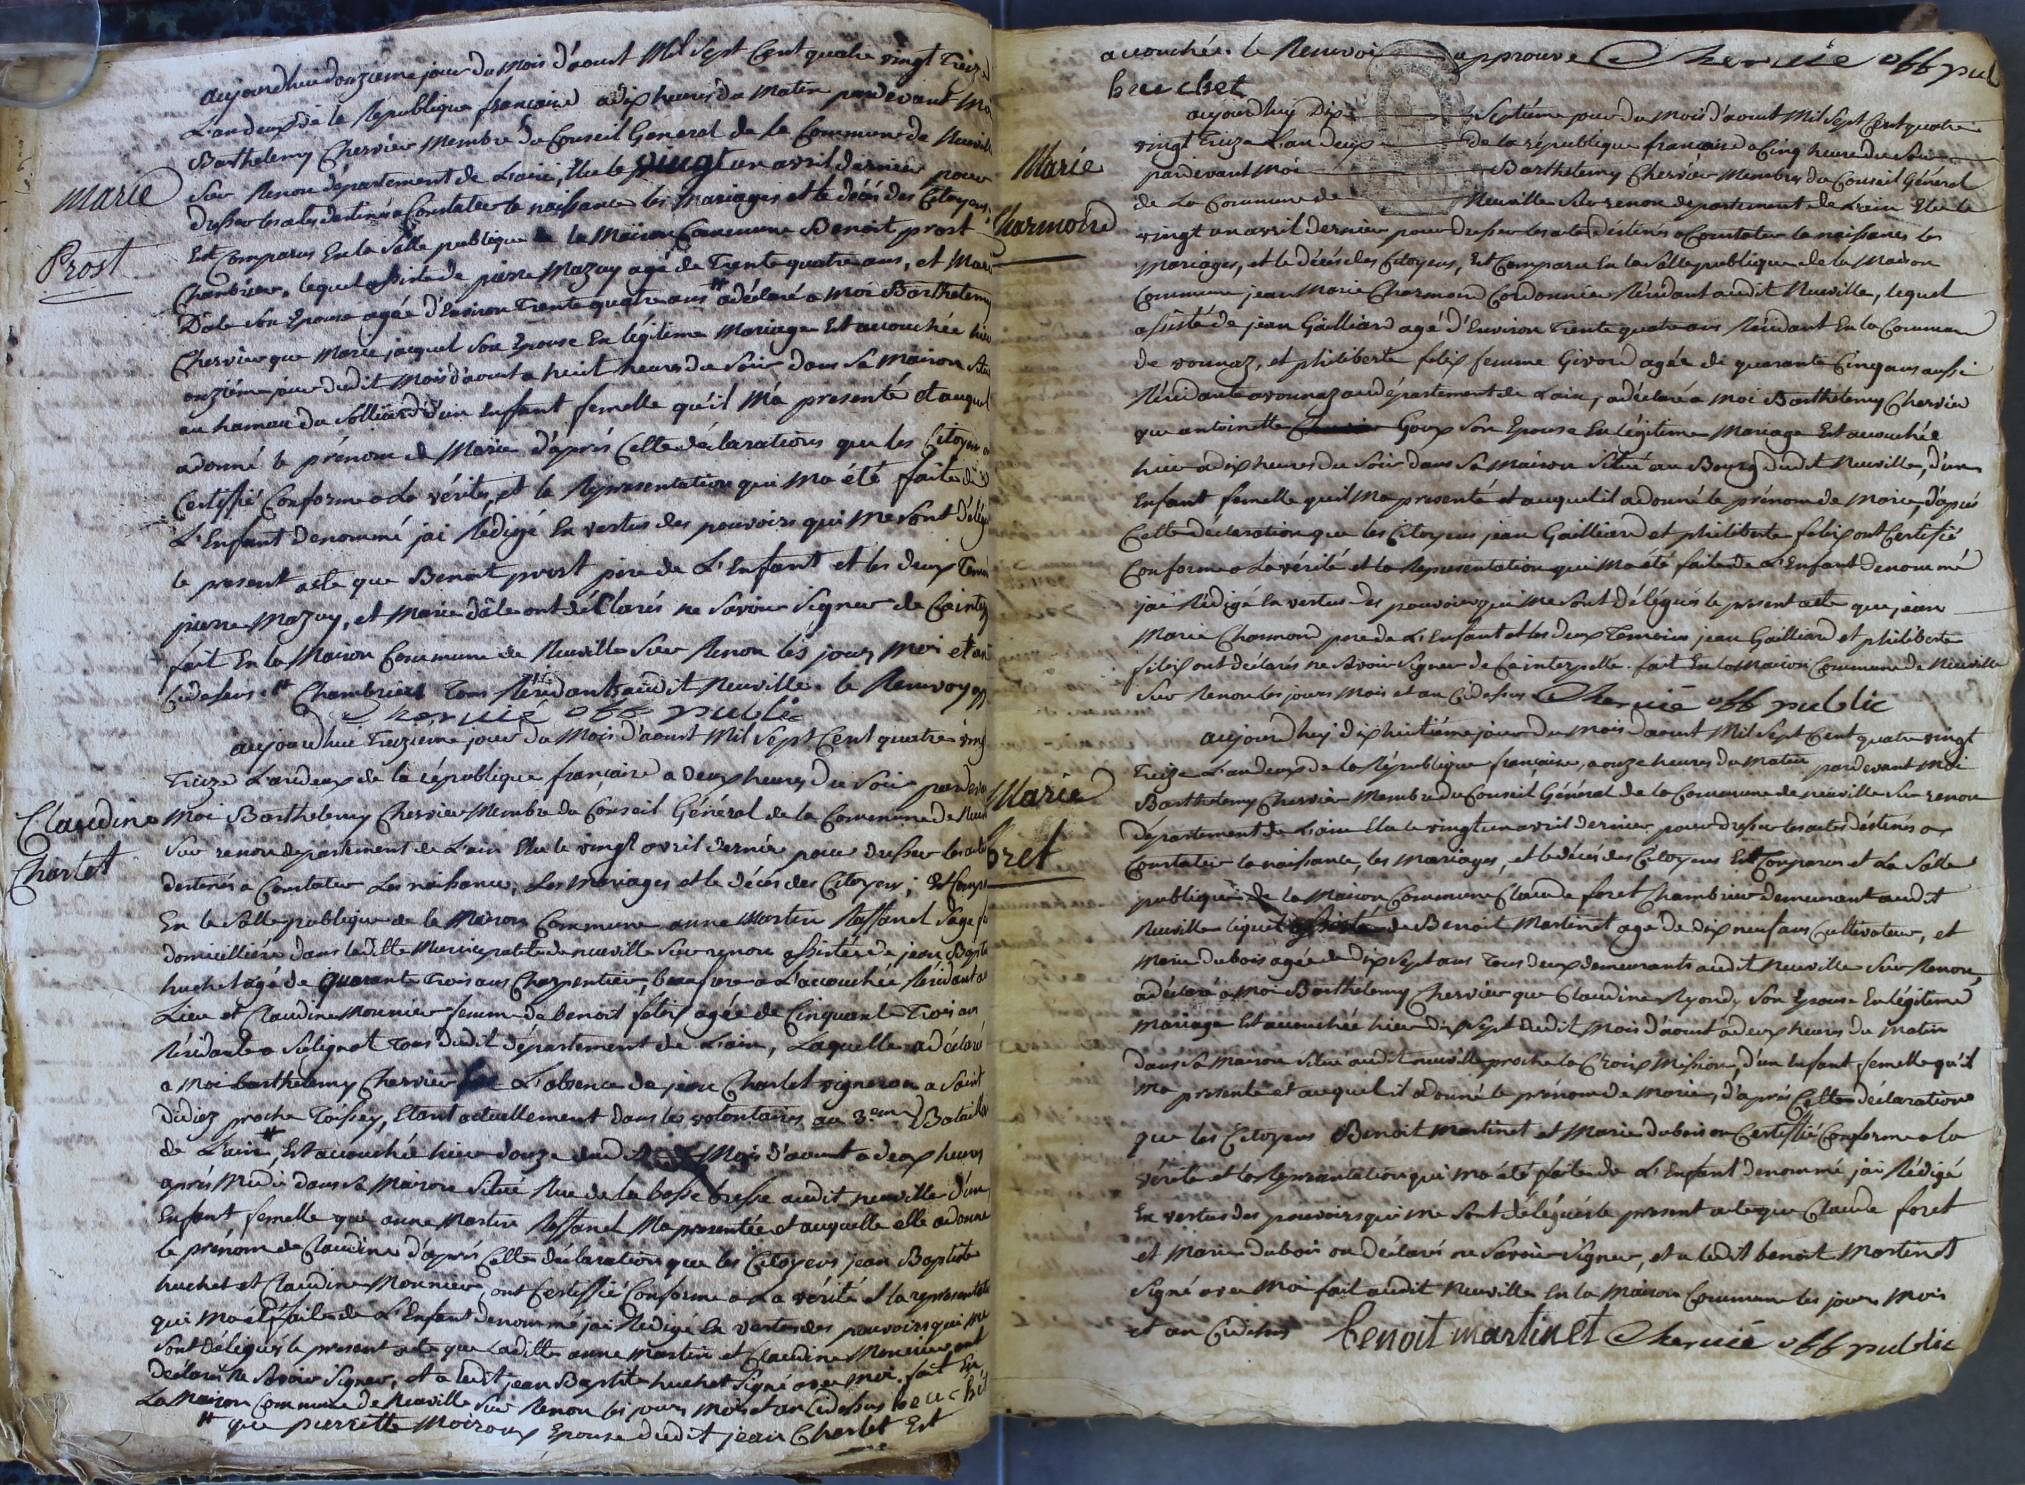 aujourdhui douzieme jour du mois d'aoust Mil Sept Cent quatre vingt Treize
L'an deux de la Republique francaise a dix heures du matin pardevant Moi
Barthelemy Chervier Membre du Conseil General de la Commune de Neuville
Sur Renon département de L'ain, Elu le vingt un avril dernier pour
Marie
dresser les actes destinés a Constater la naissance les Mariages et le décés des Citoyens,
Prost
Est Comparu En la Salle publique de la Maison Commune Benoit prost
Chambrier, lequel assisté de pierre Mazuy agé de Trente quatre ans, et Marie
Dâle Son Epouse agée d'Environ Trente quatre ans # a déclaré a Moi Barthelemy
Chervier que Marie jacquet Son Epouse En légitime Mariage Est accouchée hier
onziéme jour dudit Mois d'aoust a huit heures du Soir dans Sa Maison Située
au hamau du Solliard d'un Enfant femelle qu'il M'a presenté et auquel
a donné le prénom de Marie d'aprés Cette déclaration que les Citoyens
Certiffié Conforme a La vérité, et la Representation qui Ma été faite de
L'Enfant denommé jai Rédigé En vertus des pouvoirs qui me Sont Délégués
le present acte que Benoit prost pere de L'Enfant et les deux Temoins
pierre Mazuy, et Marie dâle ont déclarés ne Savoir Signer de Ce interpellés
fait En la Maison Commune de Neuville Sur Renon les jours Mois et an
Cidessus # Chambriers Tous Résidants audit Neuville. le Renvoy app
Chervié off public
aujourdhui Treizieme jour du Mois d'aoust Mil Sept Cent quatre vingt
Treize L'an deux de la république francaise a deux heures du Soir pardevant
Claudine
Moi Barthelemy Chervier Membre du Conseil Général de la Commune de Neuville
Chartet
Sur renon departement de L'ain Elu le vingt avril dernier pour dresser les actes
destinés a Constater Les naissances, Les Mariages et le décés des Citoyens; Est Comparue
En la Salle publique de la Maison Commune anne Martin Raffanel Sage fe
domicilliée dans laditte Municipalité de neuville Sur renon assistée de jean Baptiste
huchet agé de Quarante Trois ans Charpentier, beaufrere a L'accouchée Résidant a
Lieu et Claudine Mounier femme de benoit felix agée de Cinquante Trois ans
Résidante a Sélignat Tous dudit département de L'ain, Laquelle a déclaré
a Moi barthelemy Chervier L'absence de jean Chartet vigneron a Saint
didiez proche Toissey, Etant actuellement dans les volontaires au 3eme Bataillon
de L'ain #, Est accouché hier douze dudit Mois d'aoust a deux heures
aprés Midi dans Sa Maison Situé Rue de la basse bresse audit neuville d'un
Enfant femelle que anne Martin Raffanel Ma presentée et auquelle elle a donné
le prénom de Claudine d'aprés Cette déclaration que les Citoyens jean Baptiste
huchet et Claudine Mounier, ont Certiffié Conforme a La vérité et la representation
qui Ma été faite de L'Enfant denommé jai Rédigé En vertus des pouvoirs qui me
Sont délégués le present acte que Laditte anne Martin et Claudine Mounier ont
déclarés Ne Savoir Signer, et a ledit jean Baptiste huchet Signé avec moi. fait En
La Maison Commune de Neuville Sur Renon les jours Mois et an Cidessus
# que pierrette Moiroux Epouse dudit jean Chartet Est
accouchée. le Renvoi approuvé Chervié off pub
huchet
aujourdhuy Dix Septiéme jour du Mois d'aoust Mil Sept Cent quatre
vingt Treize L'an deux de la république francaise a Cinq heure du Soir
Marie
pardevant Moi Barthelemy Chervier Membre du Conseil Général
de La Commune de Neuville Sur renon departement de L'ain Elu le
Charmond
vingt un avril dernier pour dresser les actes déstinés a Constater la naissance les
Mariages, et le décés des Citoyens, Est Comparu En la Salle publique de la Maison
Commune jean Marie Charmond Cordonnier Résidant audit Neuville, lequel
assisté de jean Gailliard agé d'Environ Trente quatre ans Résidant En la Commune
de vonnaz, et philiberte felix femme Givord agée de quarante Cinq ans aussi
Résidante a vonnaz au département de L'ain, a déclaré a Moi Barthelemy Chervier
que antoinette Goux Son Epouse En légitime Mariage Est accouchée
hier a dix heures du Soir dans Sa Maison Située au Bourg dudit Neuville, d'un
Enfant femelle quil Ma presenté et auquel il a donné le prénom de Marie, d'aprés
Cette déclaration que les Citoyens jean Gailliard et philiberte felix ont Certifié
Conforme a La vérité et la Representation qui Ma été faite de L'Enfant denommé
jai Rédigé En vertus des pouvoirs qui me Sont délégués le present acte que jean
Marie Charmond pere de L'Enfant et les deux Temoins jean Gailliard et philiberte
felix ont déclarés ne Savoir Signer de Ce interpellé. fait En la Maison Commune de Neuville
Sur Renon les jours Mois et an Cidessus Chervié off public
aujourdhuy dix huitiéme jour du mois daoust Mil Sept Cent quatre vingt
Treize L'an deux de la République francaise, a onze heures du Matin pardevant Moi
Marie
Barthelemy Chervier Membre du Conseil Général de la Commune de neuville Sur renon
foret
département de L'ain Elu le vingt un avril dernier pour dresser les actes déstinés a
Constater la naissance, les Mariages, et le décés des Citoyens Est Comparu et La Salle
publique de la Maison Commune Claude foret Chambrier demeurant audit
Neuville lequel assisté de Benoit Martinet agé de dix neuf ans Cultivateur, et
Marie dubois agée de Dix Sept ans Tous deux demeurants audit Neuville Sur Renon,
a déclaré a Moi Barthelemy Chervier que Claudine Son Epouse En légitime
Mariage Est accouchée hier dix Sept dudit Mois d'aoust a deux heures du Matin
dans Sa Maison Situé audit neuville proche la Croix Mission, d'un Enfant femelle qu'il
Ma presenté et auquel il a donné le prénom de Marie, d'aprés Cette déclaration
que les Citoyens Benoit Martinet et Marie dubois on Certiffié Conforme a la
vérité et la Representation qui Ma été faite de L'Enfant denommé, jai Rédigé
En vertus des pouvoirs qui me Sont délégués le present acte que Claude foret
et Marie dubois on Déclarés ne Savoir Signer, et a ledit benoit Martinet
Signé avec Moi fait audit Neuville En la Maison Commune les jours Mois
et an Cidessus benoit martinet Chervié off public